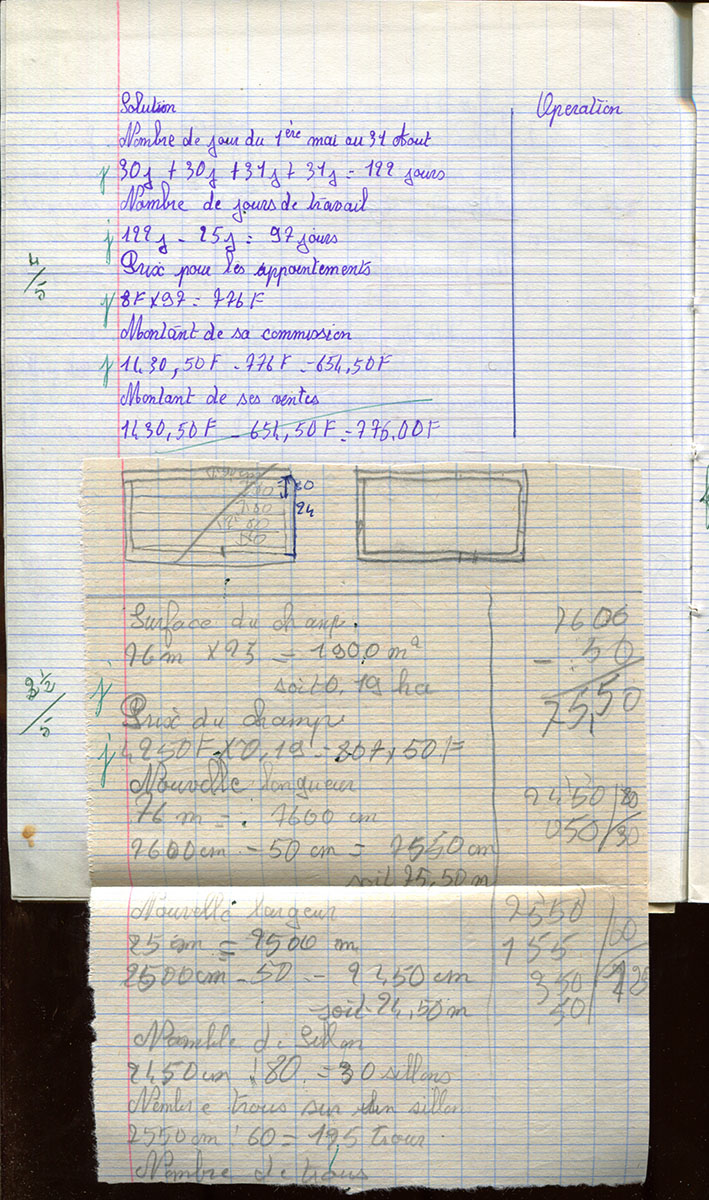 Solution
Operation
Nombre de jour du 1ère mai au 31 Aout
30j + 30j + 31j + 31j = 122 jours
Nombre de jours de travail
122j - 25j = 97 jours
4/5
Prix pour les appointements
8F x 97 = 776F
Montant de sa commission
1430,50F - 776F = 654,50F
Montant de ses ventes
1430,50F - 654,50F = 776,00F
80
24
Surface du champ.
76m x 25 = 1900 m²
soit 0,19 ha
7600
- 50
75,50
3 1/2 /5
Prix du champ
4250F x 0,19 = 807,50F
Nouvelle longueur
76 m = 7600 cm
7600cm - 50 cm = 7550 cm
soit 75,50 m
2450 80
050 30
Nouvelle largeur
25 cm = 2500 m
2500cm - 50 = 2450 cm
soit 24,50 m
7550 60
155 125
350
50
Nomble de Sillon
2450cm : 80 = 30 sillons
Nombre trous sur un sillon
2550cm : 60 = 125 trour
Nombre de trous